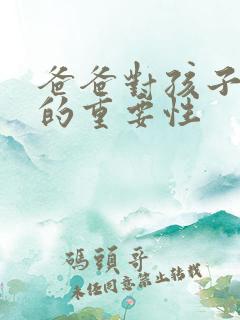 爸爸對孩子
的重要性
碼頭哥
未經同意禁止轉載